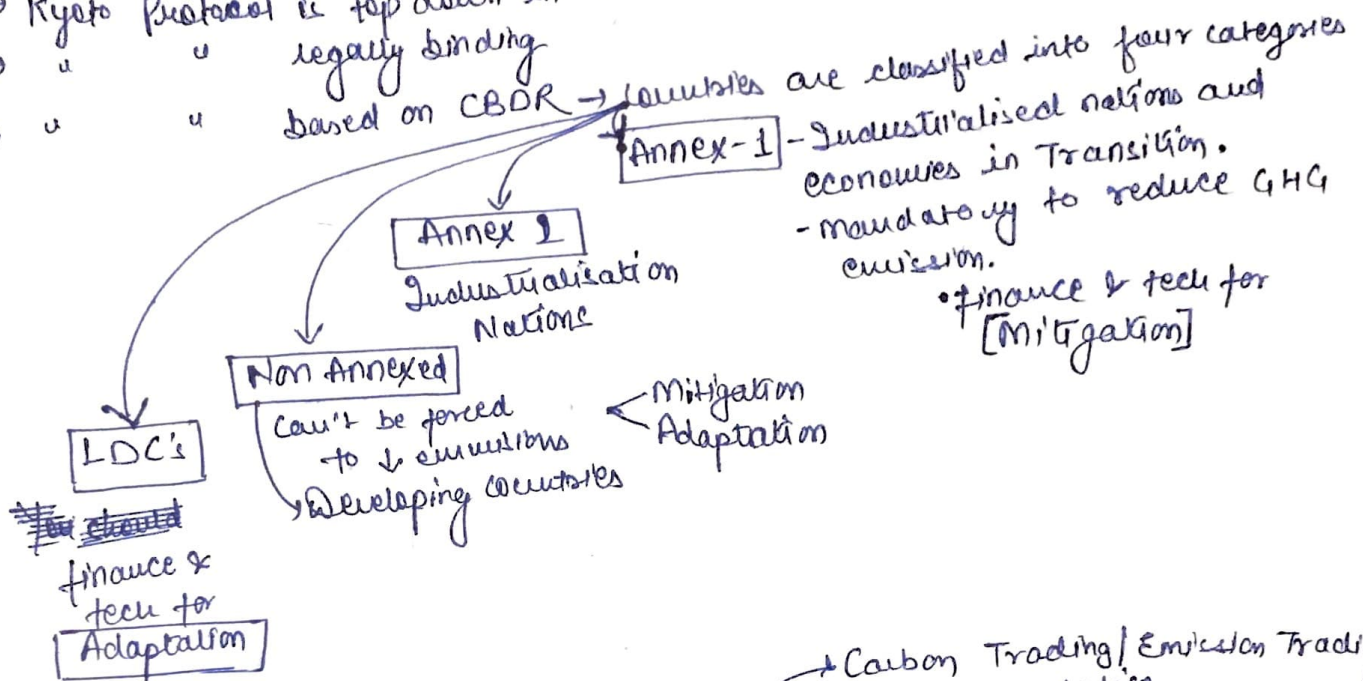 Kyoto Protocol is top down
" " legally binding
" " based on CBDR → Countries are classified into four categories
Annex-1 - Industrialised nations and
economies in Transition.
- mandatory to reduce GHG
emission.
• finance & tech for
[Mitigation]
Annex 2
Industrialisation
Nations
Non Annexed
Can't be forced
to ↓ emissions
Developing countries
Mitigation
Adaptation
LDC's
finance &
tech for
Adaptation
Carbon Trading/Emission Tradi